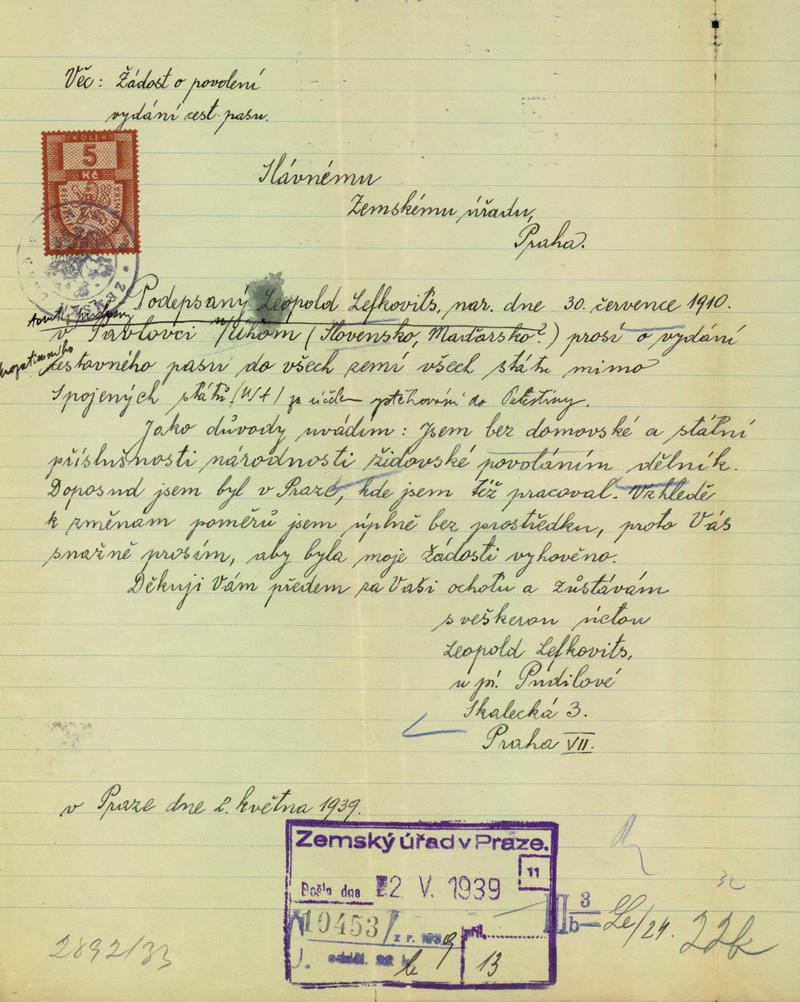 Věc: Žádost o povolení
vydání cest. pasu.
KOLEK
5
Kč
Slávnému
Zemskému úřadu,
Praha.
Podepsaný Leopold Lefkovits, nar. dne 30. července 1910.
v Pavlovci n/Uhom (Slovensko, Maďarsko?) prosí o vydání
cestavného pasu do všech zemí všech státu mimo
Spojených států za účelem vystěhování do Palestiny.
Jako důvody uvádím: Jsem bez domovské a státní
příslušnosti národnosti židovské povoláním dělník.
Doposud jsem byl v Praze, kde jsem též pracoval. Vzhledě
k změnam poměrů jsem úplně bez prostředku, proto Vás
snažně prosím, aby byla moje žádosti vyhověno.
Děkuji Vám předem za Vaši ochotu a zůstávám
s veškerou úctou
Leopold Lefkovits,
u pí. Pudilové
Skalecká 3.
Praha VII.
v Praze dne 2. května 1939.
Zemský úřad v Praze.
11
Došlo dne 2 V. 1939
19453/ z r. 1939 příl.
odděl. 22 13
II 3
b
Le/24. 22b
2892/33